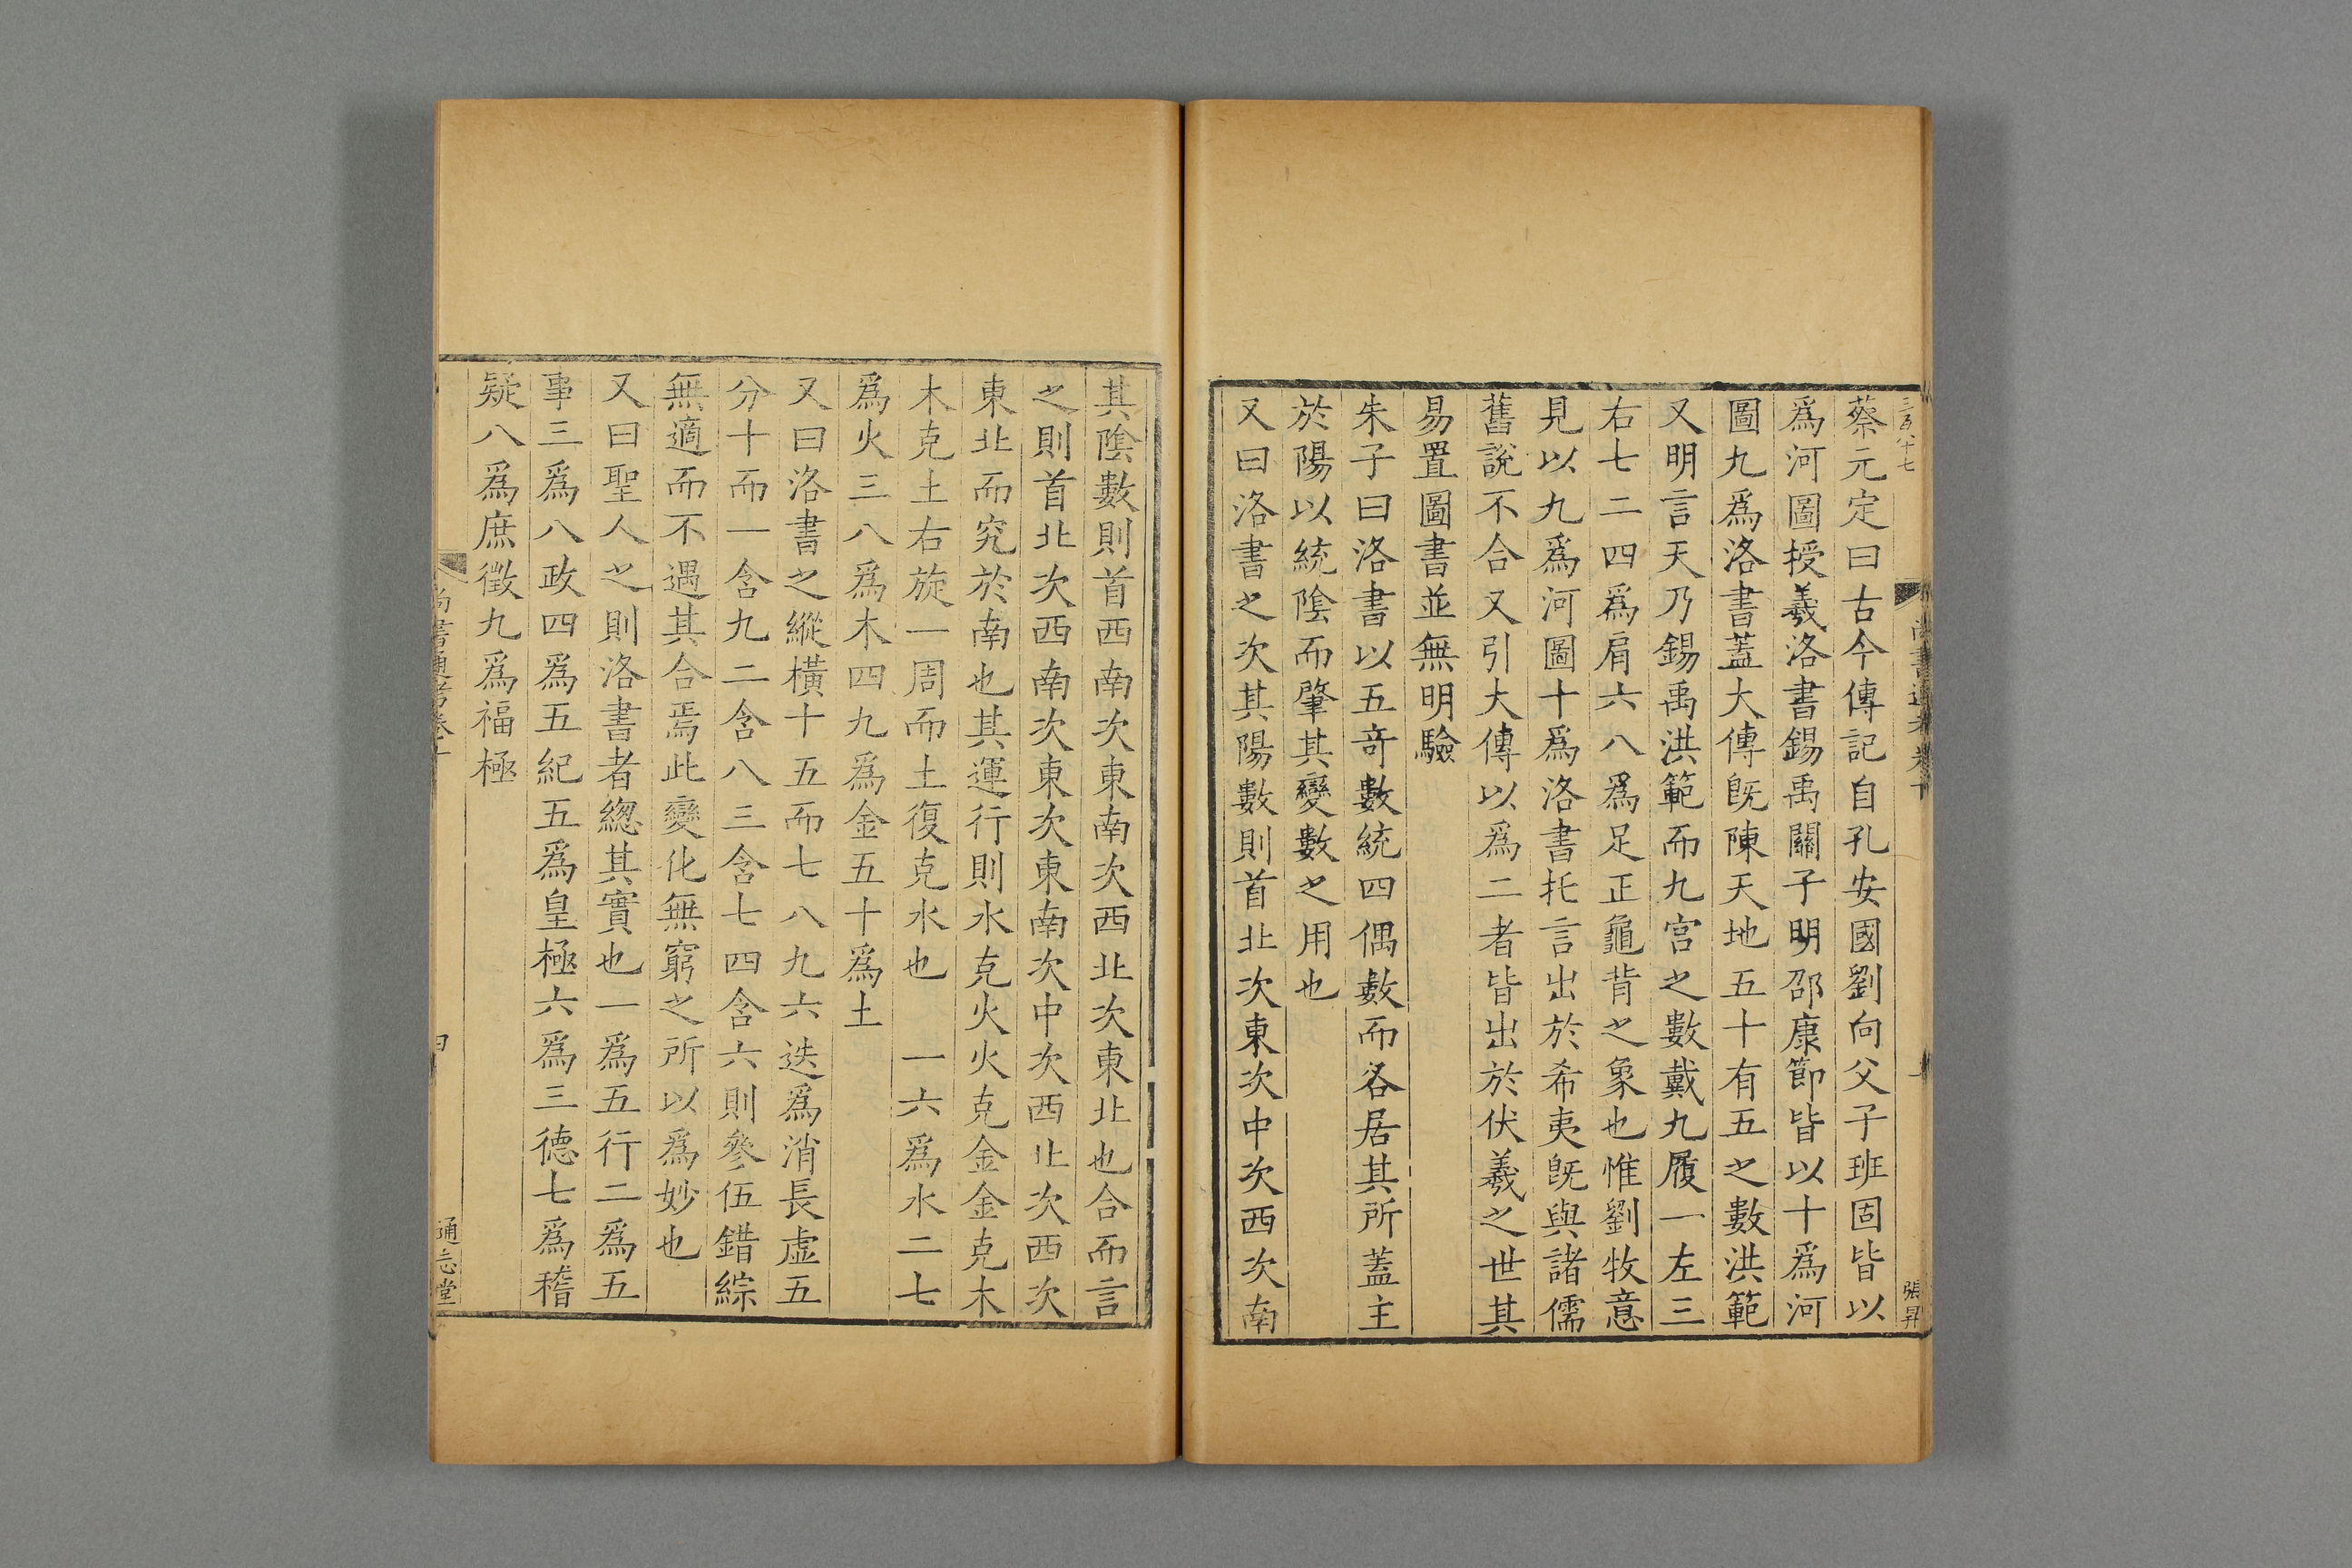 三百八十七
張昇
蔡元定曰古今傳記自孔安國劉向父子班固皆以
爲河圖授羲洛書錫禹關子明邵康節皆以十爲河
圖九爲洛書蓋大傳旣陳天地五十有五之數洪範
又明言天乃錫禹洪範而九宮之數戴九履一左三
右七二四爲肩六八爲足正龜背之象也惟劉牧意
見以九爲河圖十爲洛書托言出於希夷旣與諸儒
舊說不合又引大傳以爲二者皆出於伏羲之世其
易置圖書並無明驗
朱子曰洛書以五奇數統四偶數而各居其所蓋主
於陽以統陰而肇其變數之用也
又曰洛書之次其陽數則首北次東次中次西次南
其陰數則首西南次東南次西北次東北也合而言
之則首北次西南次東次東南次中次西北次西次
東北而究於南也其運行則水克火火克金金克木
木克土右旋一周而土復克水也 一六爲水二七
爲火三八爲木四九爲金五十爲土
又曰洛書之縱橫十五而七八九六迭爲消長虛五
分十而一含九二含八三含七四含六則參伍錯綜
無適而不遇其合焉此變化無窮之所以爲妙也
又曰聖人之則洛書者總其實也一爲五行二爲五
事三爲八政四爲五紀五爲皇極六爲三德七爲稽
疑八爲庶徵九爲福極
尚書通考卷十
四
通志堂